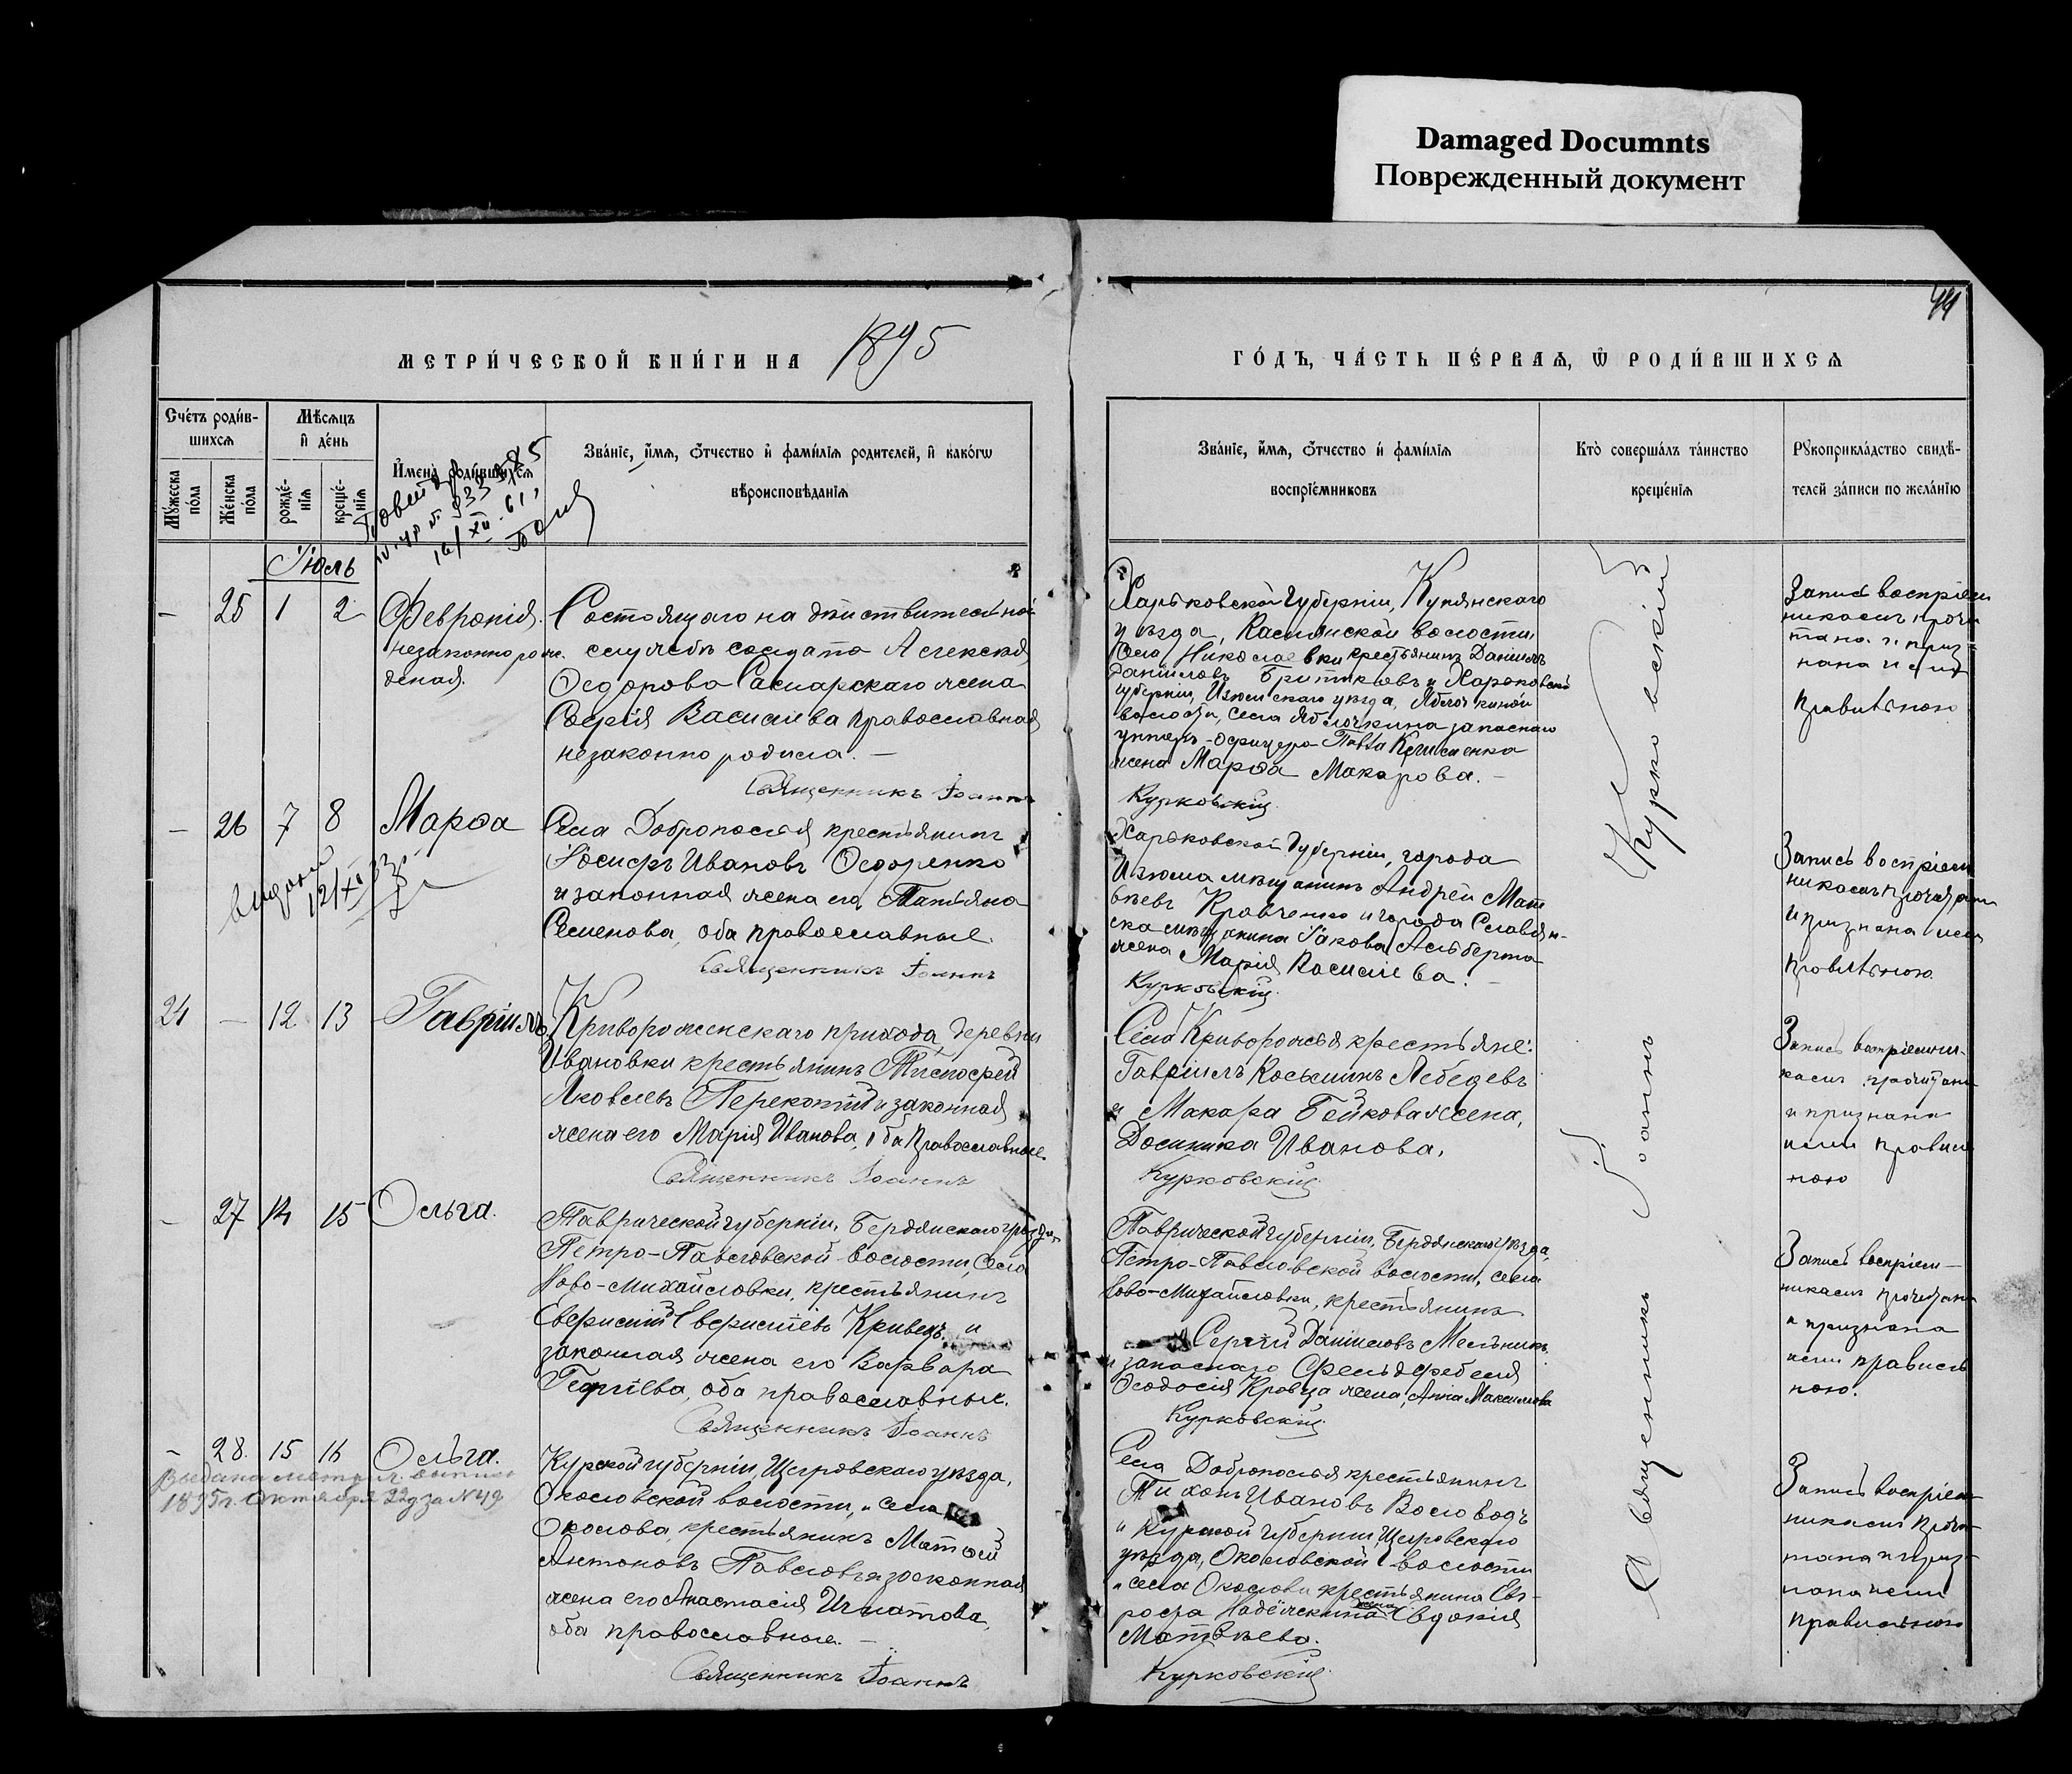 Damaged Documnts
Поврежденный документ
44
МЕТРИ́ЧЕСКОЙ КНИ́ГИ НА 1895
ГО́ДЪ, ЧА́СТЬ ПЕ́РВАѦ, Ѽ РОДИ́ВШИХСѦ
Сче́тъ роди́в-
шихсѧ
Мѣсѧцъ
и҆ де́нь
Му́жеска
по́ла
Же́нска
по́ла
рожде́-
нїѧ
креще́-
нїѧ
И҆мена̀ роди́вшихсѧ
Зва́нїе, и҆́мѧ, ѻ҆́тчество и҆ фами́лїѧ родителей, и҆ како́гѡ
вѣроисповѣданїѧ
Зва́нїе, и҆́мѧ, ѻ҆́тчество и҆ фами́лїѧ
воспрїе́мниковъ
Кто̀ соверша́лъ та́инство
креще́нїѧ
Рꙋкоприкла́дство свидѣ́-
телей за́писи по жела́нїю
16/XII 61
Іюль
— 25 1 2 Февронія
незаконнорож-
деная.
Состоящаго на дѣйствительной
службѣ солдата Алексѣя
Ѳедорова Самарскаго жена
Софія Васильева православная
незаконно родила. —
Священникъ Іоаннъ
Харьковской губерніи, Купянскаго
уѣзда, Каменской волости,
села Николаевки крестьянинъ Даніилъ
Даніиловъ Бритиковъ и Харьковской
губерніи, Изюмскаго уѣзда, Яблочкиной
волости, села Яблочкина запаснаго
унтеръ-офицера Павла Клименка
жена Марѳа Макарова. —
Курковскій.
Запись воспріем
никамъ прочи
тана и приз-
нана ими
правильною
— 26 7 8 Марѳа
выдано
12/XI 33
Села Доброполья крестьянинъ
Іосифъ Ивановъ Ѳедоренко
и законная жена его Татьяна
Семенова, оба православные.
Священникъ Іоаннъ
Харьковской губерніи, города
Изюма мѣщанинъ Андрей Мат
вѣевъ Кравченко и города Славян-
ска мѣщанина Іакова Альберта
жена Марія Васильева. —
Курковскій.
Запись воспріем
никамъ прочитана
и признана ими
правильною
24 — 12 13 Гавріилъ
Криворожскаго прихода, деревни
Ивановки крестьянинъ Тимофей
Яковлевъ Перекотій и законная
жена его Марія Иванова, оба православные.
Священникъ Іоаннъ
Села Криворожья крестьяне:
Гавріилъ Косьминъ Лебедевъ
и Макара Бейкова жена,
Домника Иванова.
Курковскій.
Запись воспріемни-
камъ прочитана
и признана
ими правиль
ною
— 27 14 15 Ольга.
Таврической губерніи, Бердянскаго уѣзда,
Петро-Павловской волости, села
Ново-Михайловки, крестьянинъ
Евфимій Евфиміевъ Кривецъ и
законная жена его Варвара
Георгіева, оба православные.
Священникъ Іоаннъ
Таврической губерніи, Бердянскаго уѣзда,
Петро-Павловской волости, села
Ново-Михайловки, крестьянинъ
Сергій Даніиловъ Мельникъ
и запаснаго фельдфебеля
Ѳеодосія Кравца жена, Анна Максимова
Курковскій.
Запись воспріем-
никамъ прочитана
и признана
ими правиль
ною.
— 28. 15 16 Ольга.
Выдана метрич. выпись
1895 г. октября 22 д за № 49
Курской губерніи, Щигровскаго уѣзда,
Околовской волости, села
Околова, крестьянинъ Матѳей
Антоновъ Павловъ и законная
жена его Анастасія Игнатова,
оба православные. —
Священникъ Іоаннъ
Села Доброполья крестьянинъ
Тихонъ Ивановъ Воловодъ
и Курской губерніи Щигровскаго
уѣзда, Околовской волости
села Околова крестьянина
жена Евдокія
Матвѣева.
Курковскій
Запись воспріем
никамъ прочи
тана и приз-
нана ими
правильною
Священникъ Іоаннъ Курковскій